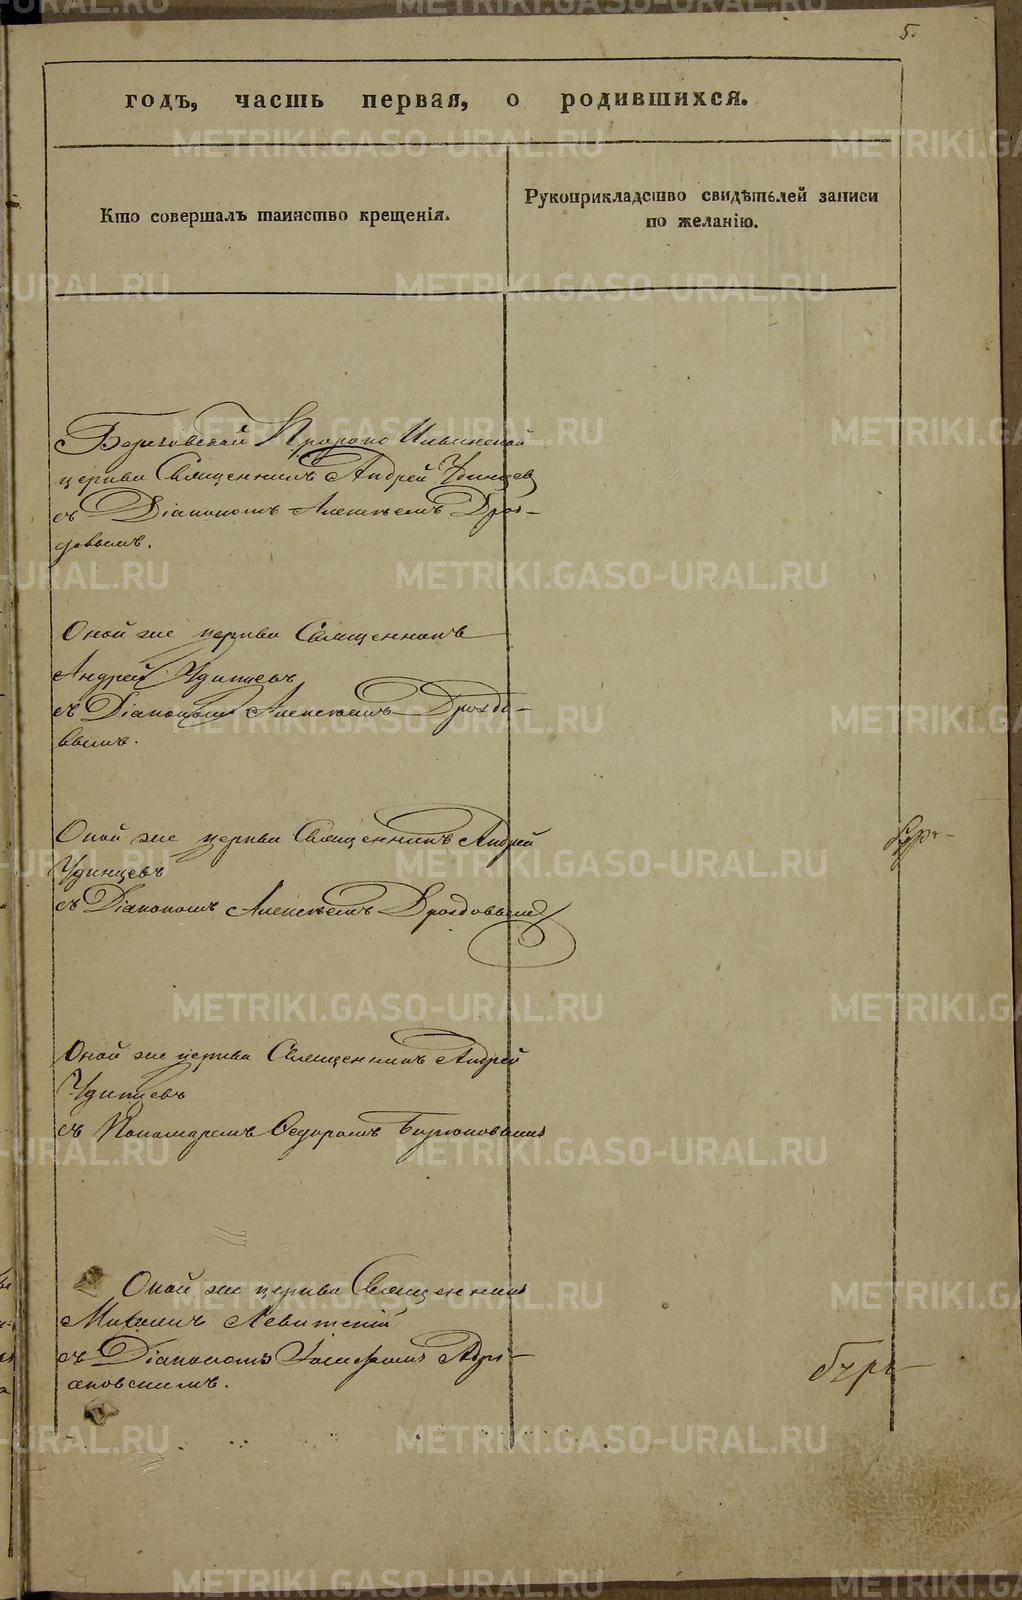 5.
годъ, часть первая, о родившихся.
Кто совершалъ таинство крещенія.
Рукоприкладство свидѣтелей записи
по желанію.
Березовской Пророко Ильинской
церкви Священникъ Андрей Удинцев
съ Діакономъ Алексѣемъ Дроз-
довымъ.
Оной же церкви Священникъ
Андрей Удинцевъ
съ Діакономъ Алексѣемъ Дроздо-
вымъ.
Оной же церкви Священникъ Андрей
Удинцевъ
съ Діакономъ Алексѣемъ Дроздовымъ
Оной же церкви Священникъ Андрей
Удинцевъ
съ Пономаремъ Ѳедоромъ Бирюковымъ
Оной же церкви Священникъ
Михаилъ Левитскій
съ Діакономъ Іосифомъ Адри-
ановскимъ.
METRIKI.GASO-URAL.RU